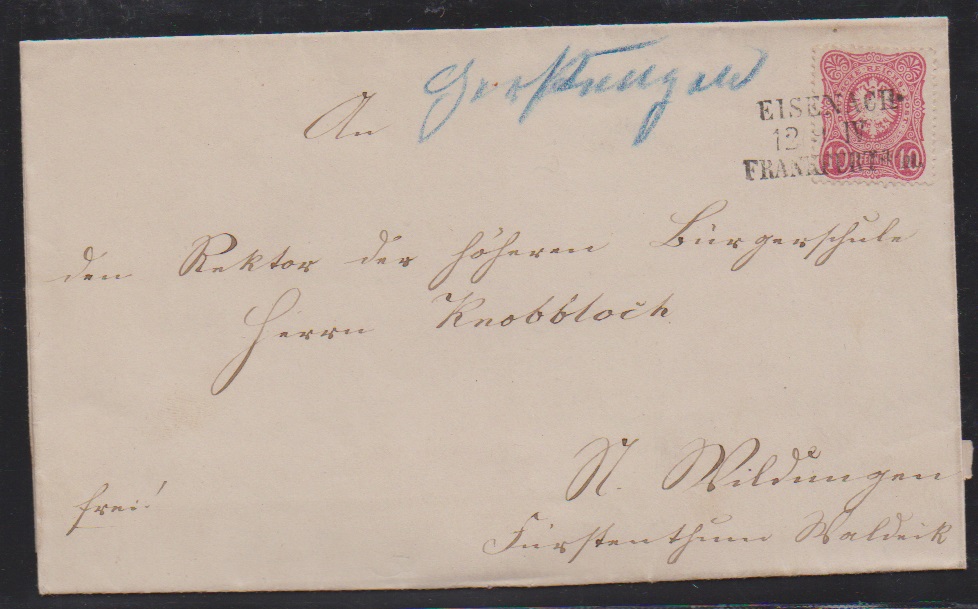 Gerstungen
An
den Rektor der höheren Bürgerschule
Herrn Knobbloch
N. Wildungen
Fürstenthum Waldeck
frei!
EISENACH
12 9 IV
FRANKFURT a M.
10 10